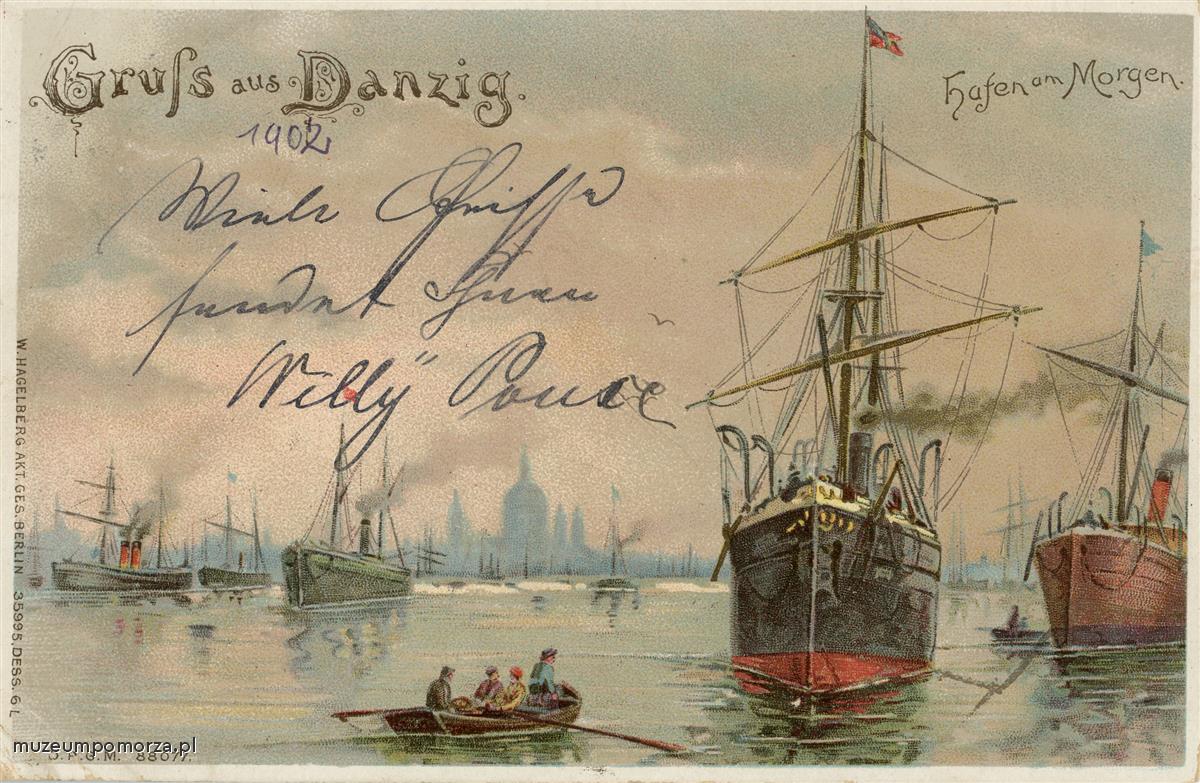 Gruſs aus Danzig.
Hafen am Morgen.
1902
Viele Grüße
sendet Ihnen
Willÿ
W. HAGELBERG AKT. GES. BERLIN 35995, DESS. 6 L
muzeumpomorza.pl
D.R.G.M. 88077.